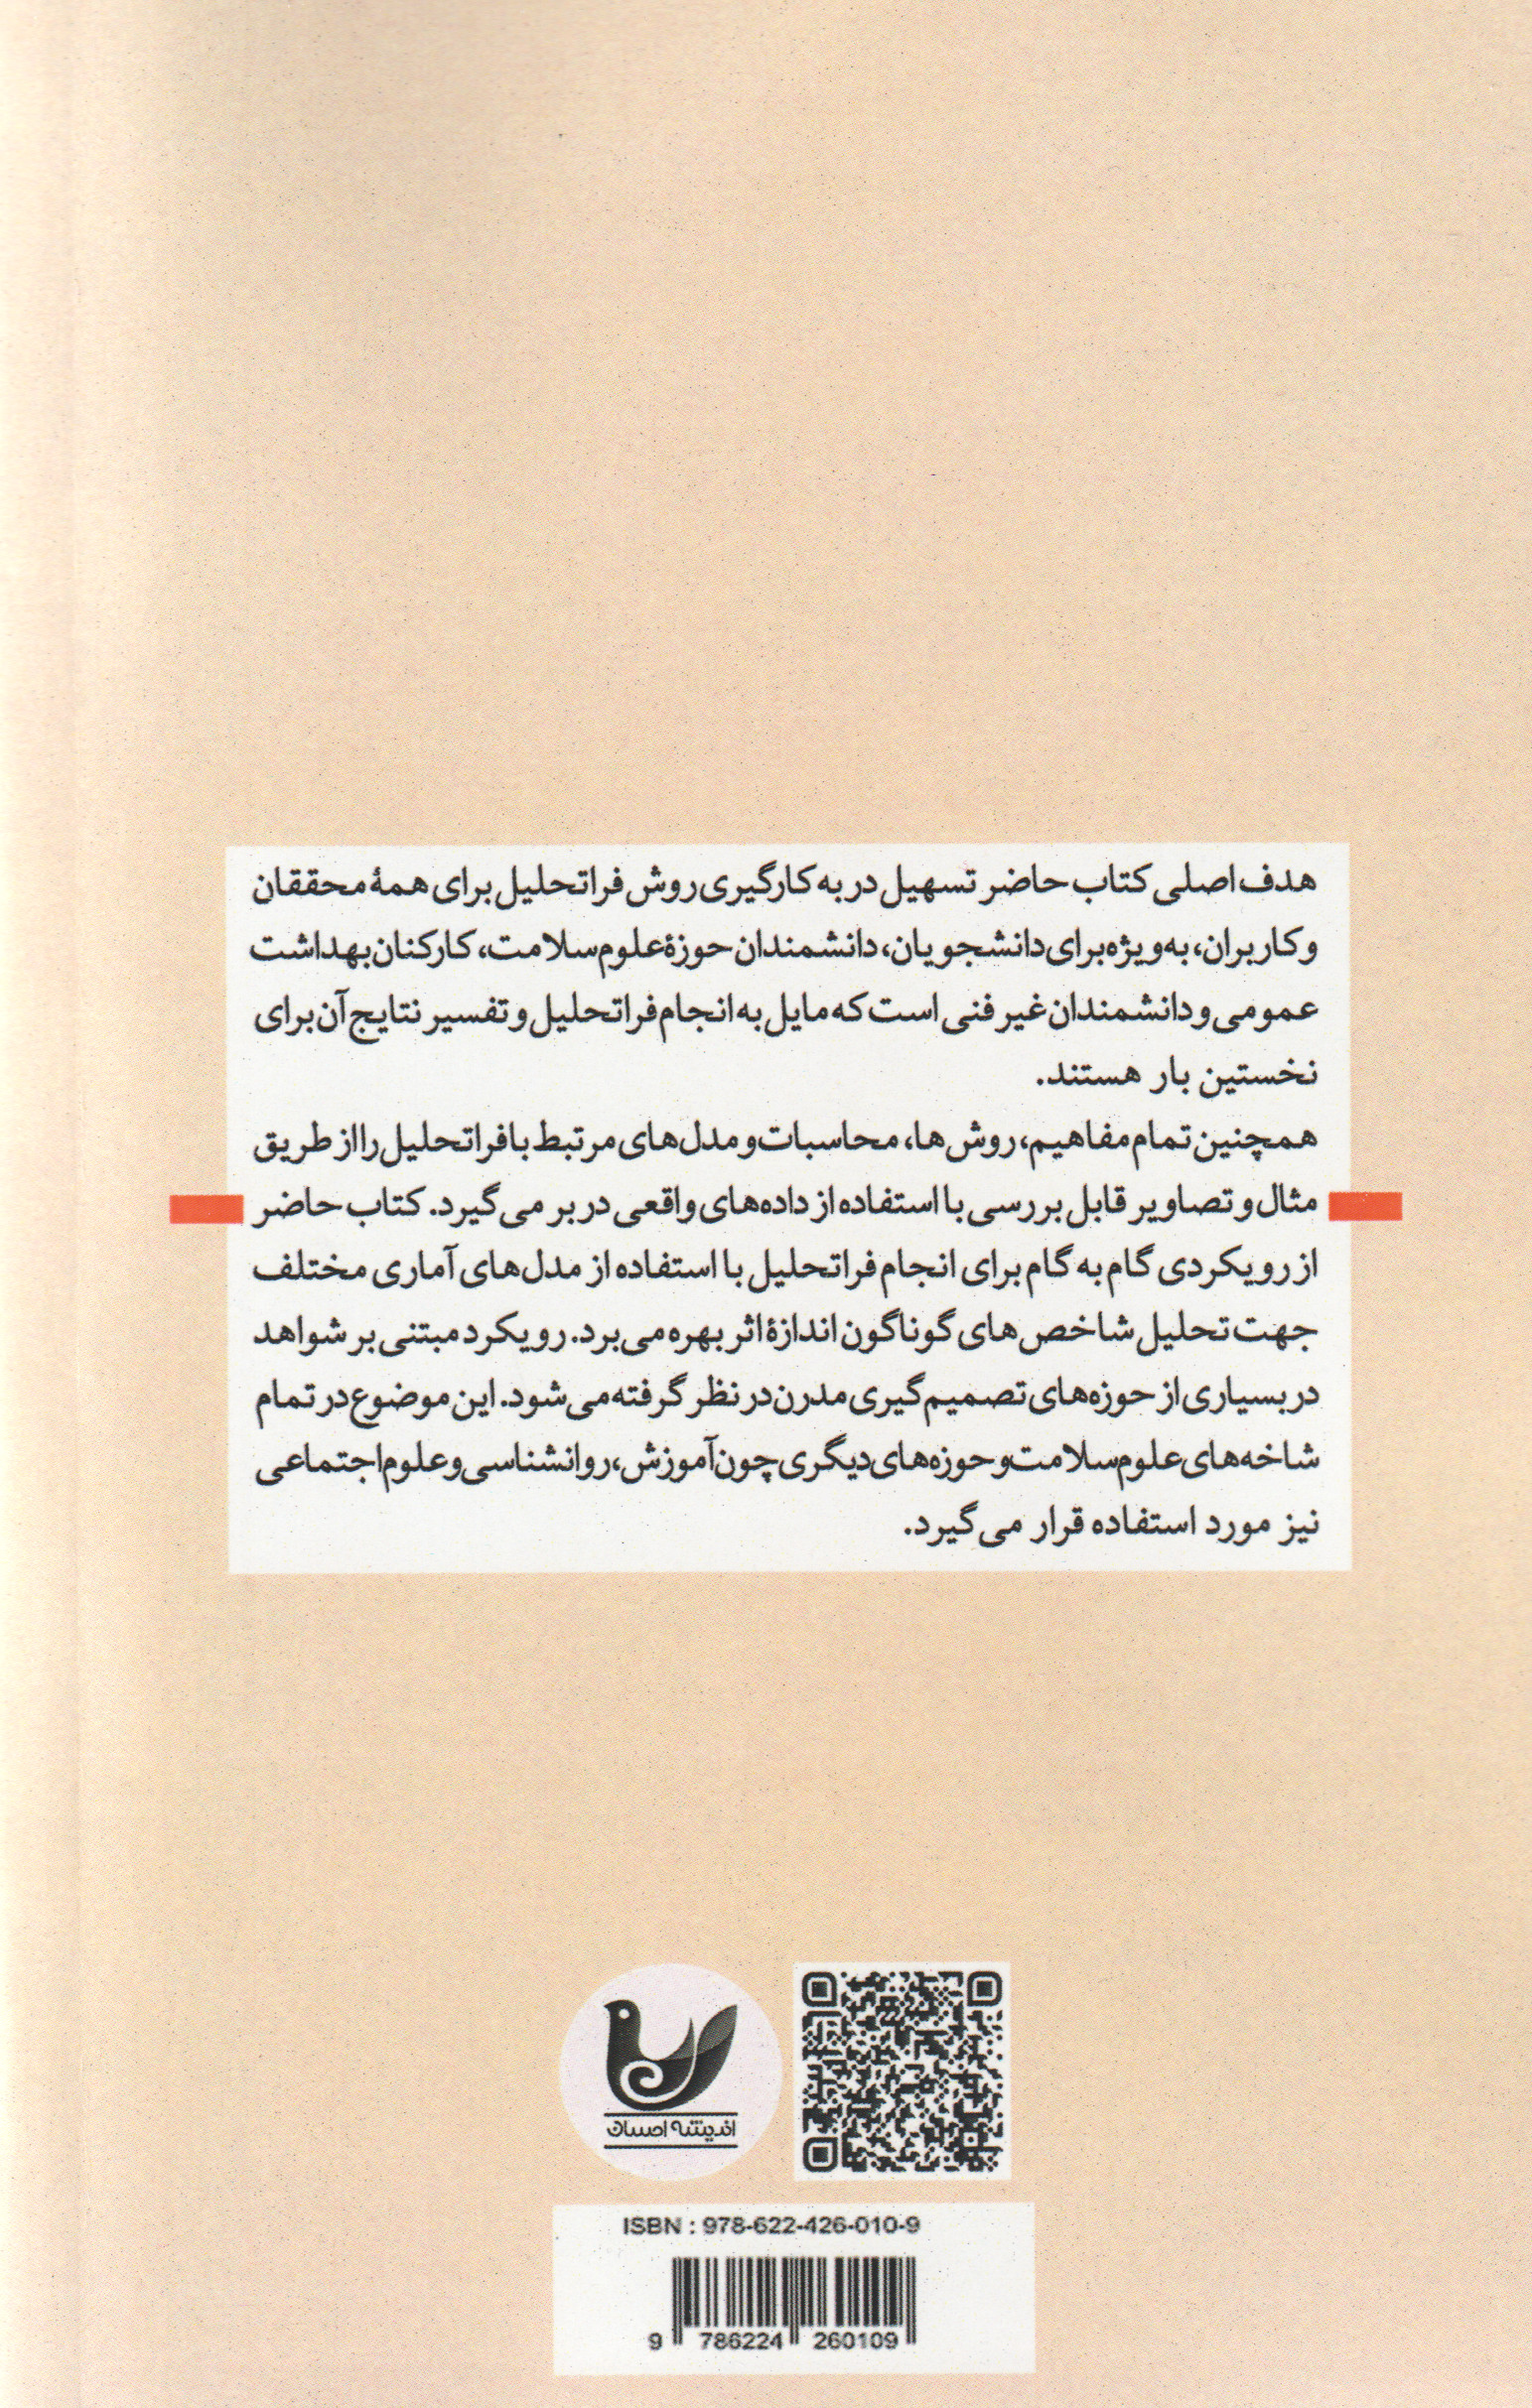 هدف اصلی کتاب حاضر تسهیل در به کارگیری روش فراتحلیل برای همهٔ محققان
و کاربران، به‌ویژه برای دانشجویان، دانشمندان حوزهٔ علوم سلامت، کارکنان بهداشت
عمومی و دانشمندان غیر فنی است که مایل به انجام فراتحلیل و تفسیر نتایج آن برای
نخستین بار هستند.
همچنین تمام مفاهیم، روش‌ها، محاسبات و مدل‌های مرتبط با فراتحلیل را از طریق
مثال و تصاویر قابل بررسی با استفاده از داده‌های واقعی در بر می‌گیرد. کتاب حاضر
از رویکردی گام به گام برای انجام فراتحلیل با استفاده از مدل‌های آماری مختلف
جهت تحلیل شاخص‌های گوناگون اندازهٔ اثر بهره می‌برد. رویکرد مبتنی بر شواهد
در بسیاری از حوزه‌های تصمیم‌گیری مدرن در نظر گرفته می‌شود. این موضوع در تمام
شاخه‌های علوم سلامت و حوزه‌های دیگری چون آموزش، روانشناسی و علوم اجتماعی
نیز مورد استفاده قرار می‌گیرد.
اندیشه احسان
ISBN : 978-622-426-010-9
9 786224 260109